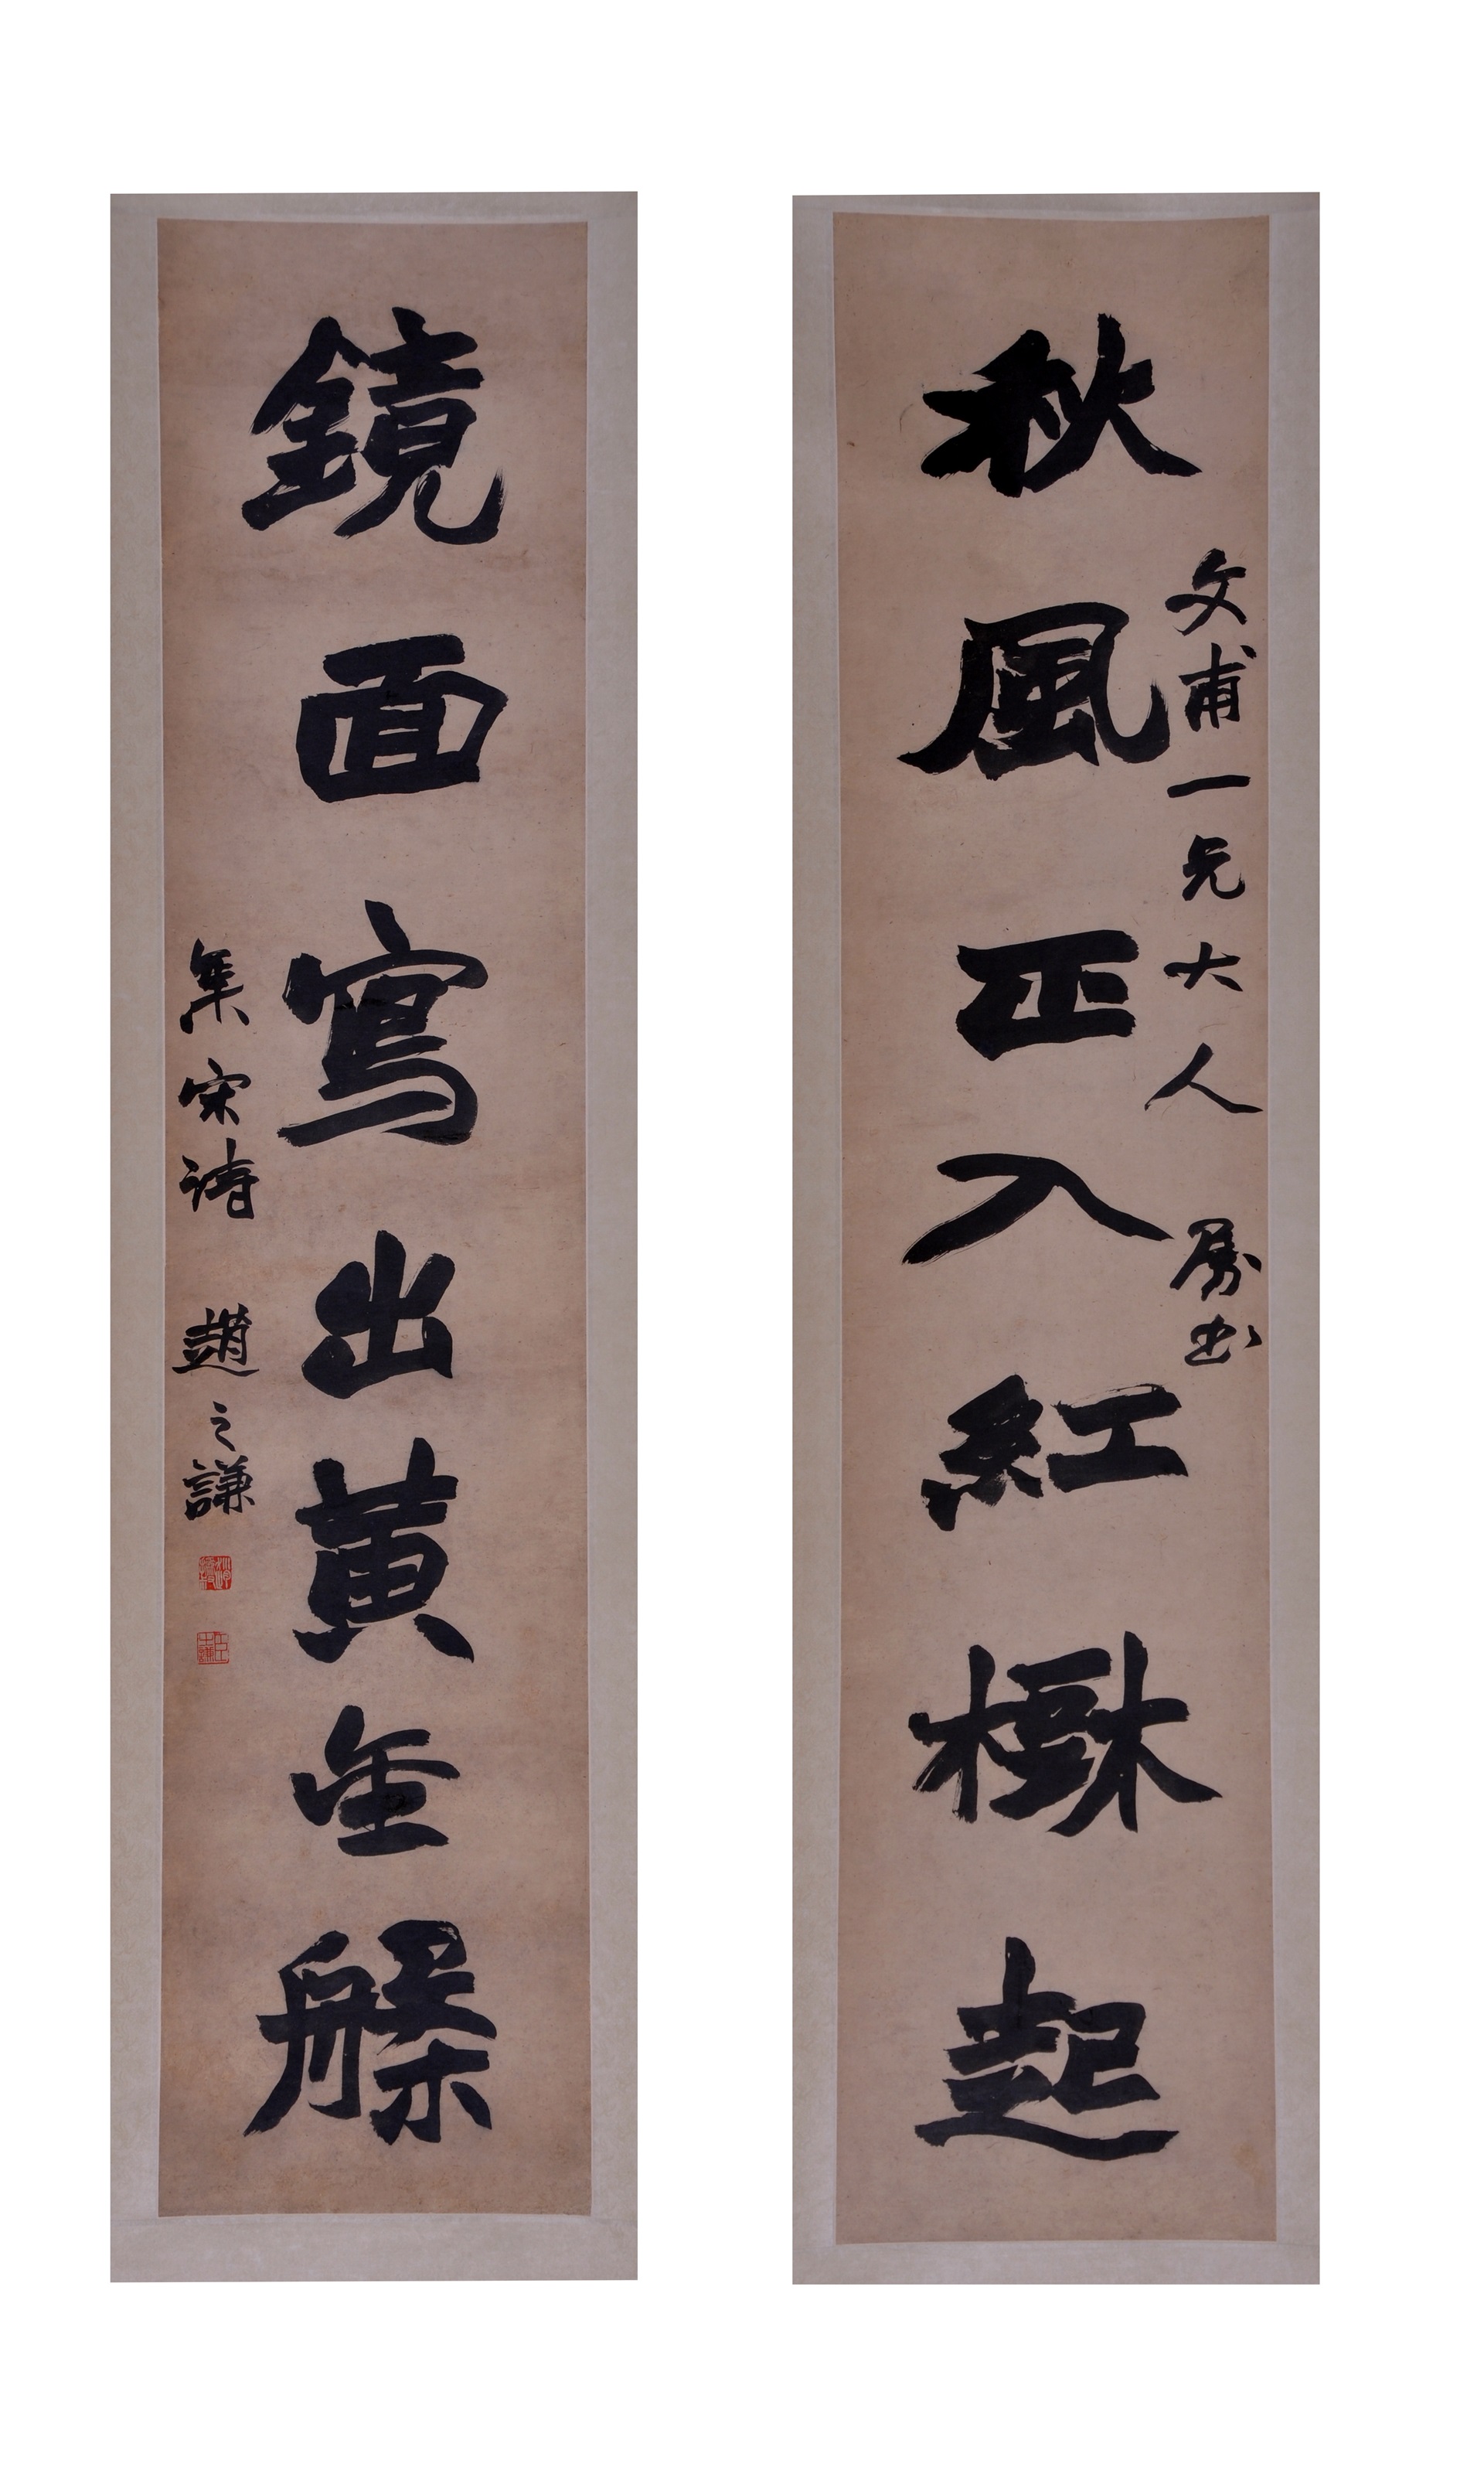 秋風正入紅起
文甫一兄大人 屬書
鏡面寫出黃金槃
集宋詩 趙之謙